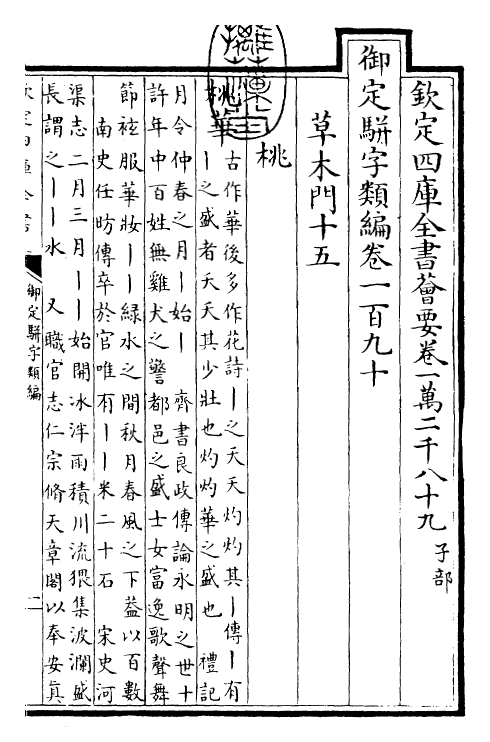 欽定四庫全書薈要卷一萬二千八十九 子部
御定駢字類編卷一百九十
草木門十五
桃
桃華 古作華後多作花詩丨之夭夭灼灼其丨傳丨有
丨之盛者夭夭其少壯也灼灼華之盛也 禮記
月令仲春之月丨始丨 齊書良政傳論永明之世十
許年中百姓無雞犬之警都邑之盛士女富逸歌聲舞
節袨服華妝丨丨綠水之間秋月春風之下葢以百數
南史任昉傳卒於官唯有丨丨米二十石 宋史河
渠志二月三月丨丨始開冰泮雨積川流猥集波瀾盛
長謂之丨丨水 又職官志仁宗修天章閣以奉安真
御定駢字類編